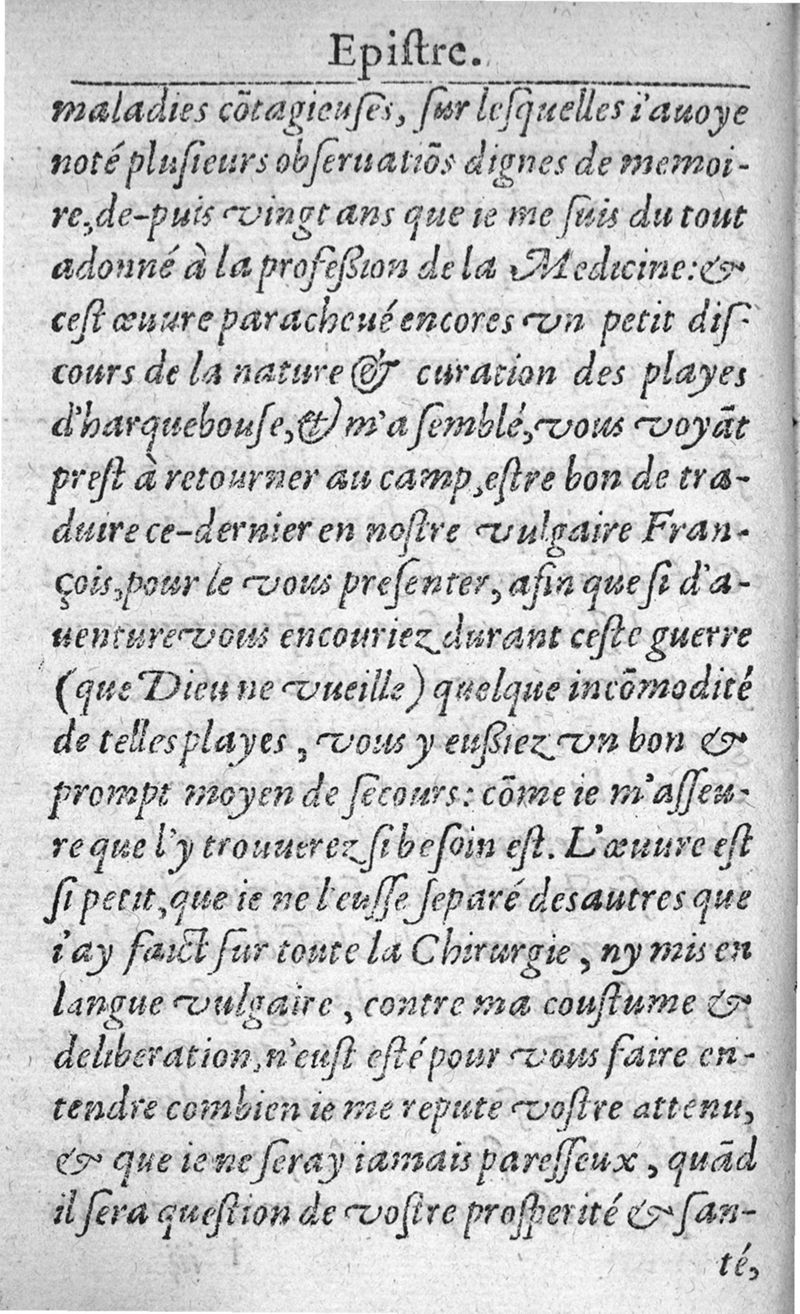 Epiſtre.
maladies cōtagieuſes, ſur leſquelles i'auoye
noté pluſieurs obſeruatiōs dignes de memoi-
re, de-puis vingt ans que ie me ſuis du tout
adonné à la profeßion de la Medicine: &
ceſt œuure paracheué encores vn petit diſ-
cours de la nature & curation des playes
d'harquebouſe, & m'a ſemblé, vous voyāt
preſt à retourner au camp, eſtre bon de tra-
duire ce-dernier en noſtre vulgaire Fran-
çois, pour le vous preſenter, afin que ſi d'a-
uenture vous encouriez durant ceſte guerre
(que Dieu ne vueille) quelque incōmodité
de telles playes, vous y eußiez vn bon &
prompt moyen de ſecours: cōme ie m'aſſeu-
re que l'y trouuerez ſi beſoin eſt. L'œuure eſt
ſi petit, que ie ne l'euſſe ſeparé des autres que
i'ay faict ſur toute la Chirurgie, ny mis en
langue vulgaire, contre ma couſtume &
deliberation, n'euſt eſté pour vous faire en-
tendre combien ie me repute voſtre attenu,
& que ie ne ſeray iamais pareſſeux, quād
il ſera queſtion de voſtre proſperité & ſan-
té,